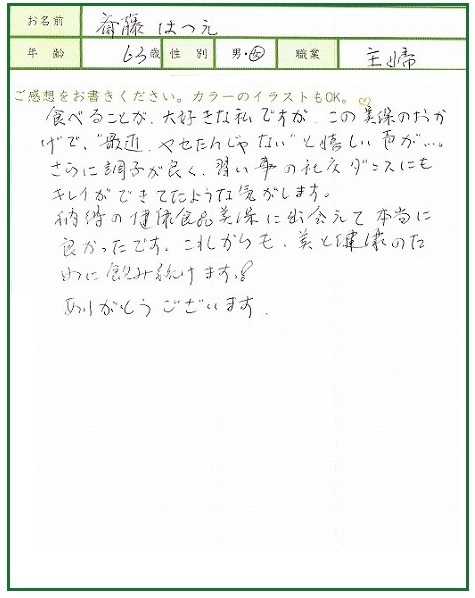 お名前 斎藤 はつえ
年齢 63歳 性別 男・女 職業 主婦
ご感想をお書きください。カラーのイラストもOK。
食べることが、大好きな私ですが、この美保のおか
げで、"最近、ヤセたんじゃない"と嬉しい声が…。
さらに調子が良く、習い事の社交ダンスにも
キレイができてたような気がします。
納得の健康食品美保に出会えて本当に
良かったです。これからも、美と健康のた
めに飲み続けます!
ありがとうございます.